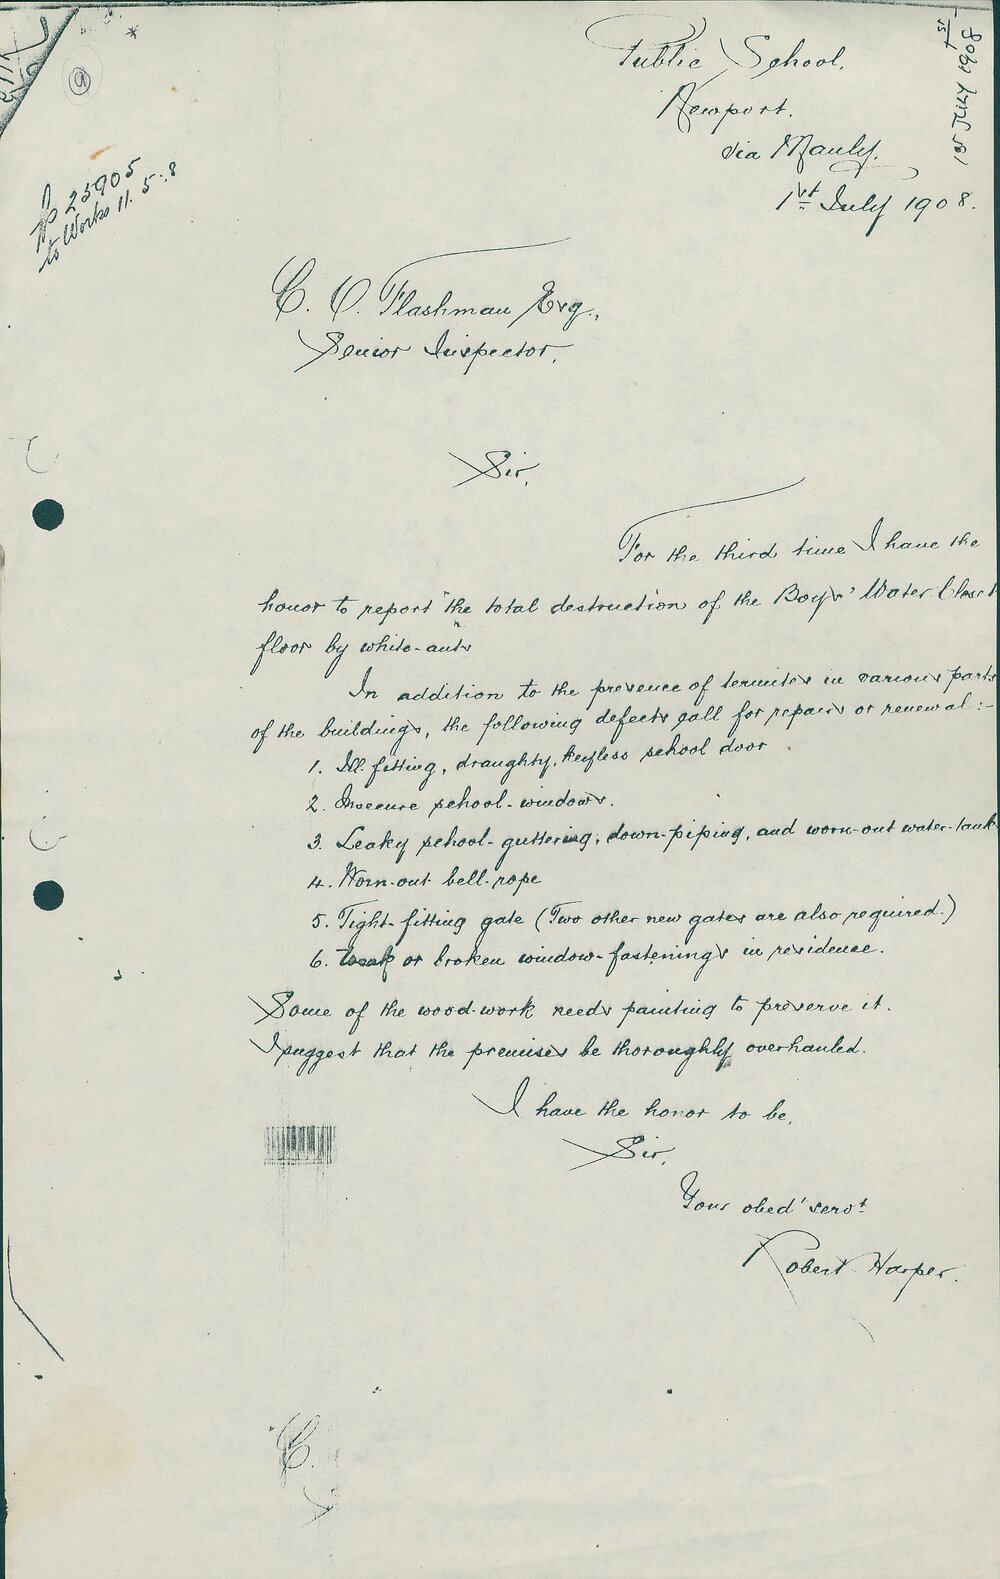 Public School,
Newport.
via Manly.
1st July 1908.
1st JULY 1908
25905
to Works 11. 5. 8
C. O. Flashman Esq.,
Senior Inspector.
Sir,
For the third time I have the
honor to report the total destruction of the Boys' Water Closet
floor by white-ants
In addition to the presence of termites in various parts
of the buildings, the following defects call for repairs or renewal :-
1. Ill fitting, draughty, keyless school door
2. Insecure school-windows.
3. Leaky school-guttering, down-piping, and worn-out water-tank
4. Worn-out bell-rope
5. Tight-fitting gate (Two other new gates are also required.)
6. Weak or broken window-fastenings in residence.
Some of the wood-work needs painting to preserve it.
I suggest that the premises be thoroughly overhauled.
I have the honor to be,
Sir,
Your obedt servt
Robert Harper.